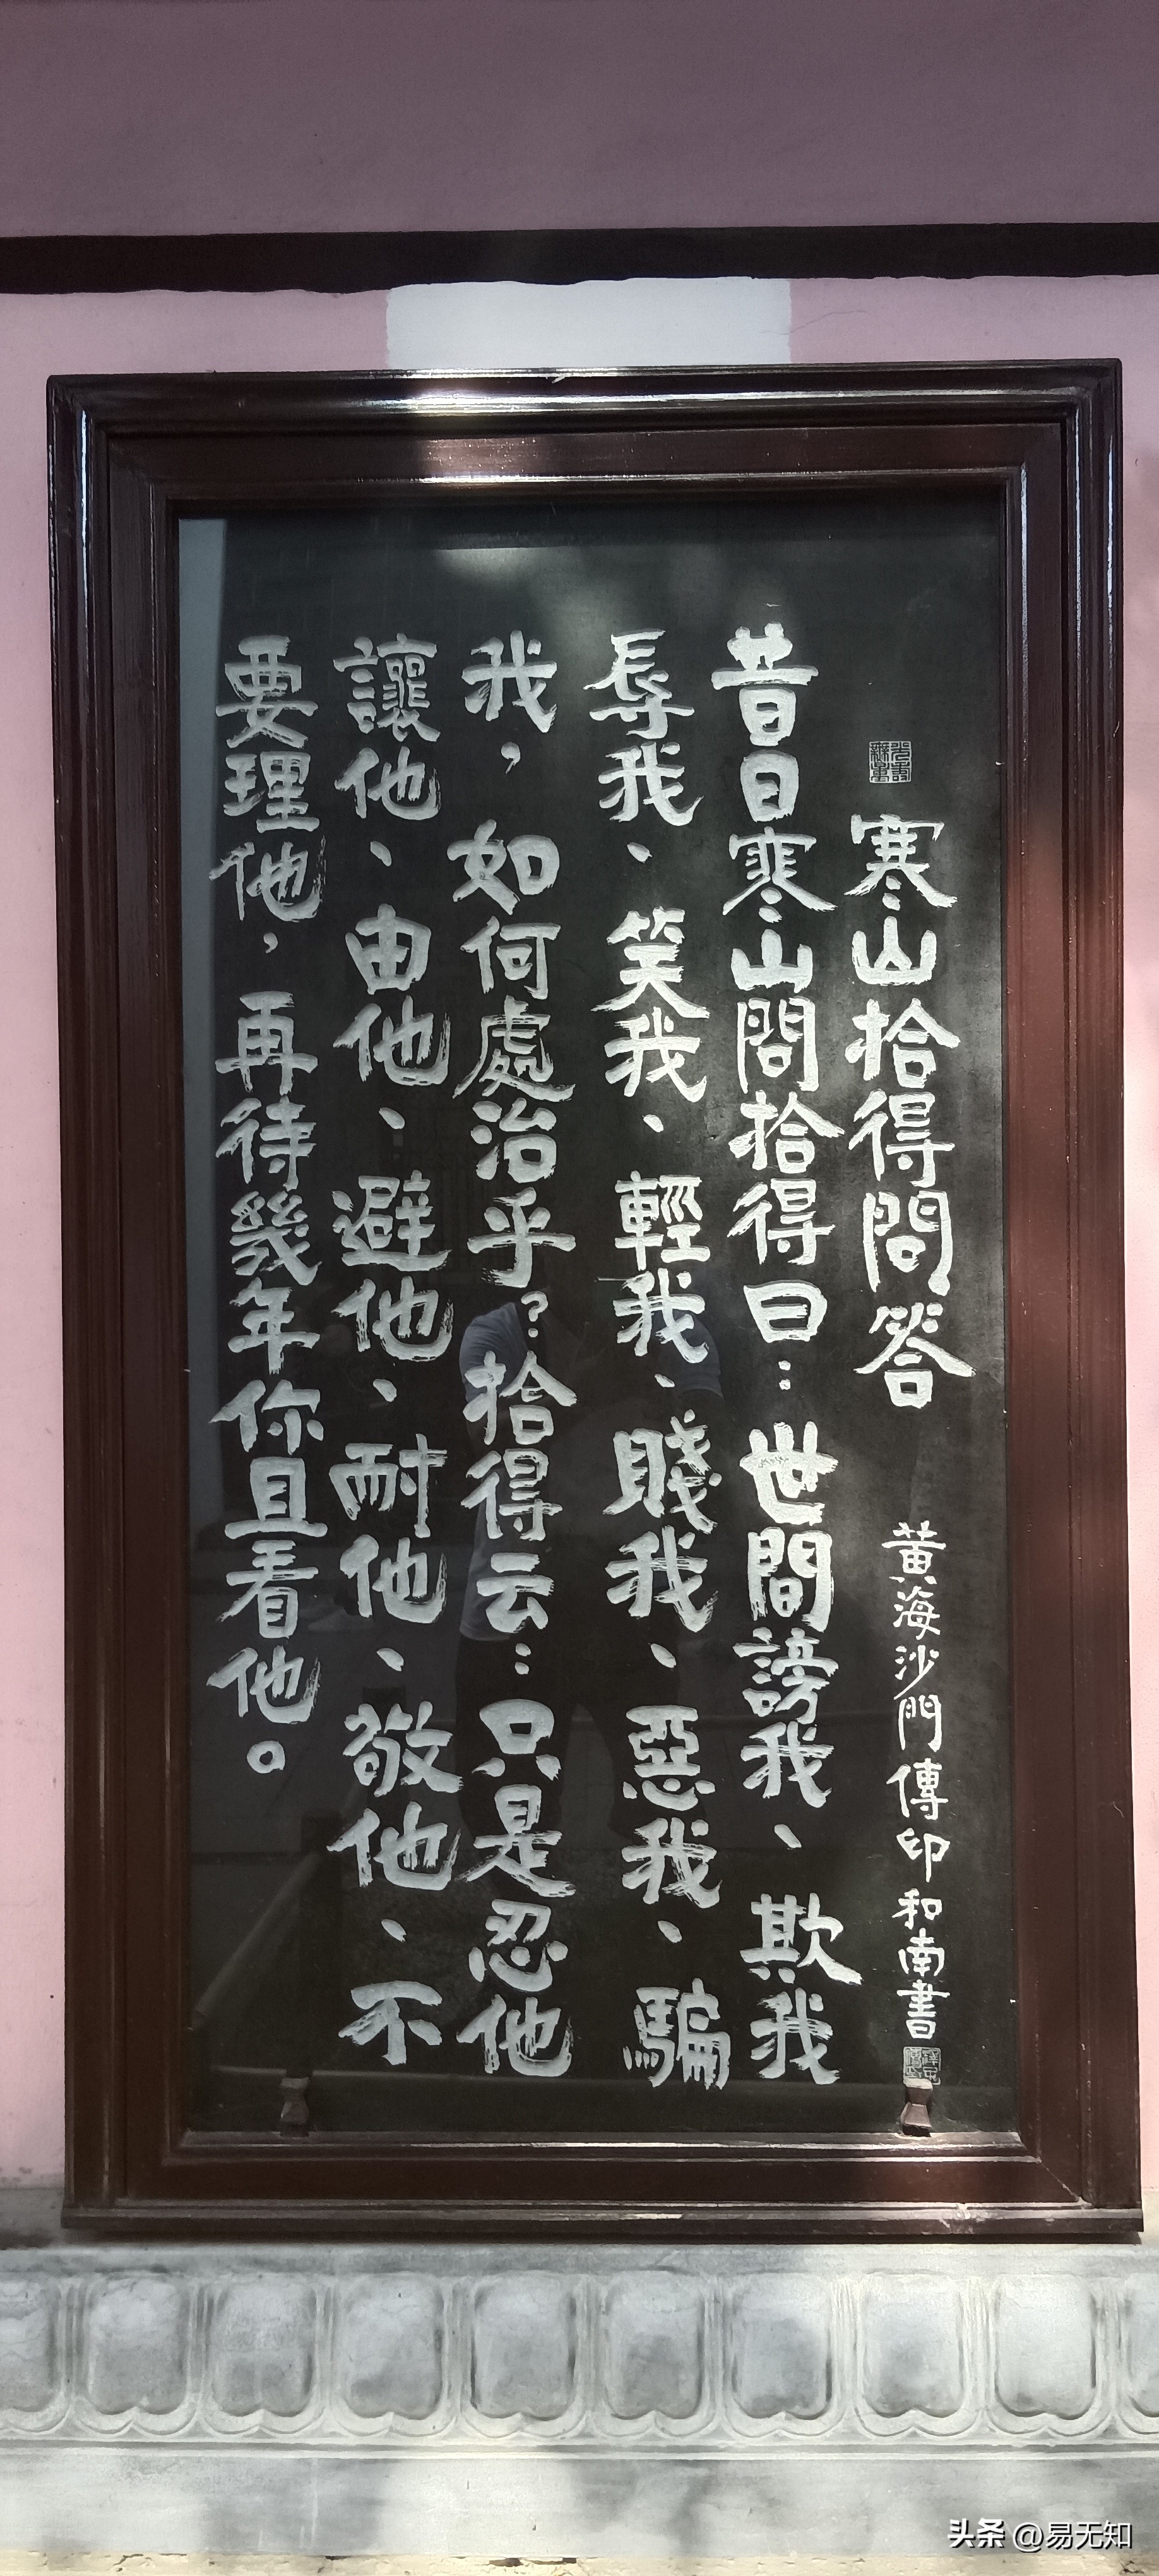 寒山拾得問答 黄海沙門傳印和南書
昔日寒山問拾得曰：世間謗我、欺我
辱我、笑我、輕我、賤我、惡我、騙
我，如何處治乎？拾得云：只是忍他
讓他、由他、避他、耐他、敬他、不
要理他，再待幾年你且看他。
头条 @易无知